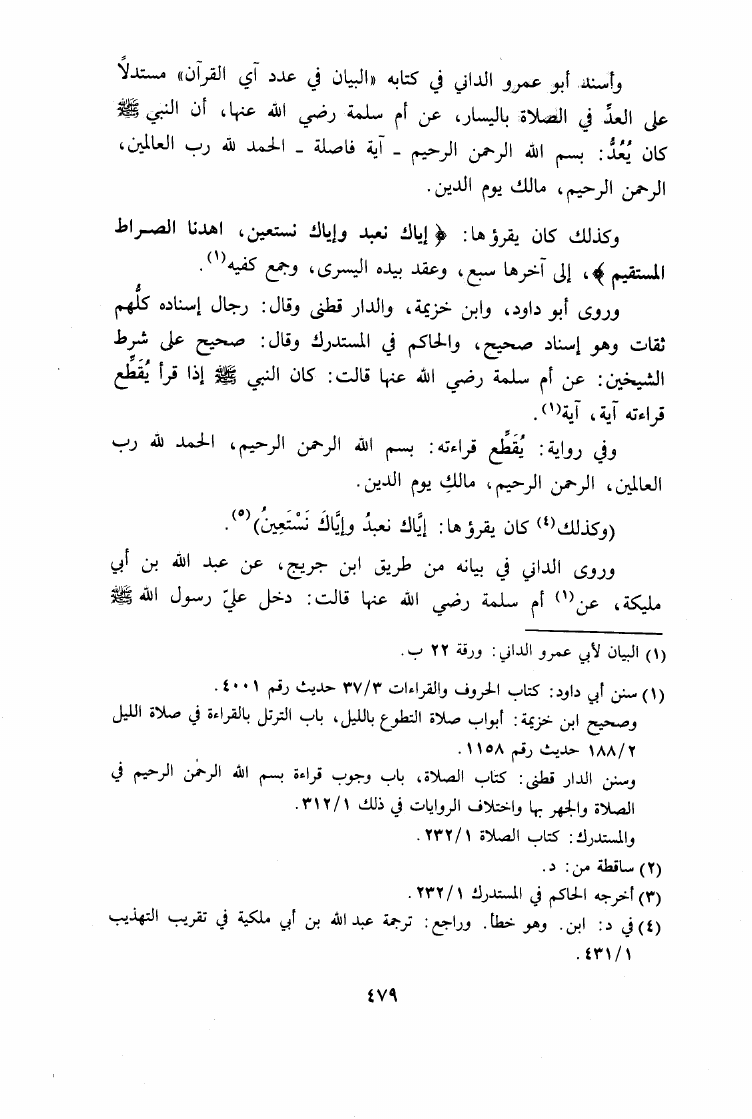 وأسند أبو عمرو الداني في كتابه «البيان في عدد آي القرآن» مستدلاً
على العدِّ في الصلاة باليسار، عن أم سلمة رضي الله عنها، أن النبي ﷺ
كان يُعُدُّ: بسم الله الرحمن الرحيم ـ آية فاصلة ـ الحمد لله رب العالمين،
الرحمن الرحيم، مالك يوم الدين.
وكذلك كان يقرؤها: ﴿ إياك نعبد وإياك نستعين، اهدنا الصراط
المستقيم ﴾، إلى آخرها سبع، وعقد بيده اليسرى، وجمع كفيه(١).
وروى أبو داود، وابن خزيمة، والدار قطنى وقال: رجال إسناده كلُّهم
ثقات وهو إسناد صحيح، والحاكم في المستدرك وقال: صحيح على شرط
الشيخين: عن أم سلمة رضي الله عنها قالت: كان النبي ﷺ إذا قرأ يُقَطِّع
قراءته آية، آية(١).
وفي رواية: يُقَطِّع قراءته: بسم الله الرحمن الرحيم، الحمد لله رب
العالمين، الرحمن الرحيم، مالكِ يوم الدين.
(وكذلك(٤) كان يقرؤها: إيَّاك نعبدُ وإيَّاكَ نَسْتَعِينُ)(٥).
وروى الداني في بيانه من طريق ابن جريج، عن عبد الله بن أبي
مليكة، عن(١) أم سلمة رضي الله عنها قالت: دخل عليّ رسول الله ﷺ
(١) البيان لأبي عمرو الداني: ورقة ٢٢ ب.
(١) سنن أبي داود: كتاب الحروف والقراءات ٣٧/٣ حديث رقم ٤٠٠١.
وصحيح ابن خزيمة: أبواب صلاة التطوع بالليل، باب الترتل بالقراءة في صلاة الليل
١٨٨/٢ حديث رقم ١١٥٨.
وسنن الدار قطنى: كتاب الصلاة، باب وجوب قراءة بسم الله الرحمٰن الرحيم في
الصلاة والجهر بها واختلاف الروايات في ذلك ٣١٢/١.
والمستدرك: كتاب الصلاة ٢٣٢/١.
(٢) ساقطة من: د.
(٣) أخرجه الحاكم في المستدرك ٢٣٢/١.
(٤) في د: ابن. وهو خطأ. وراجع: ترجمة عبد الله بن أبي ملكية في تقريب التهذيب
٤٣١/١.
٤٧٩